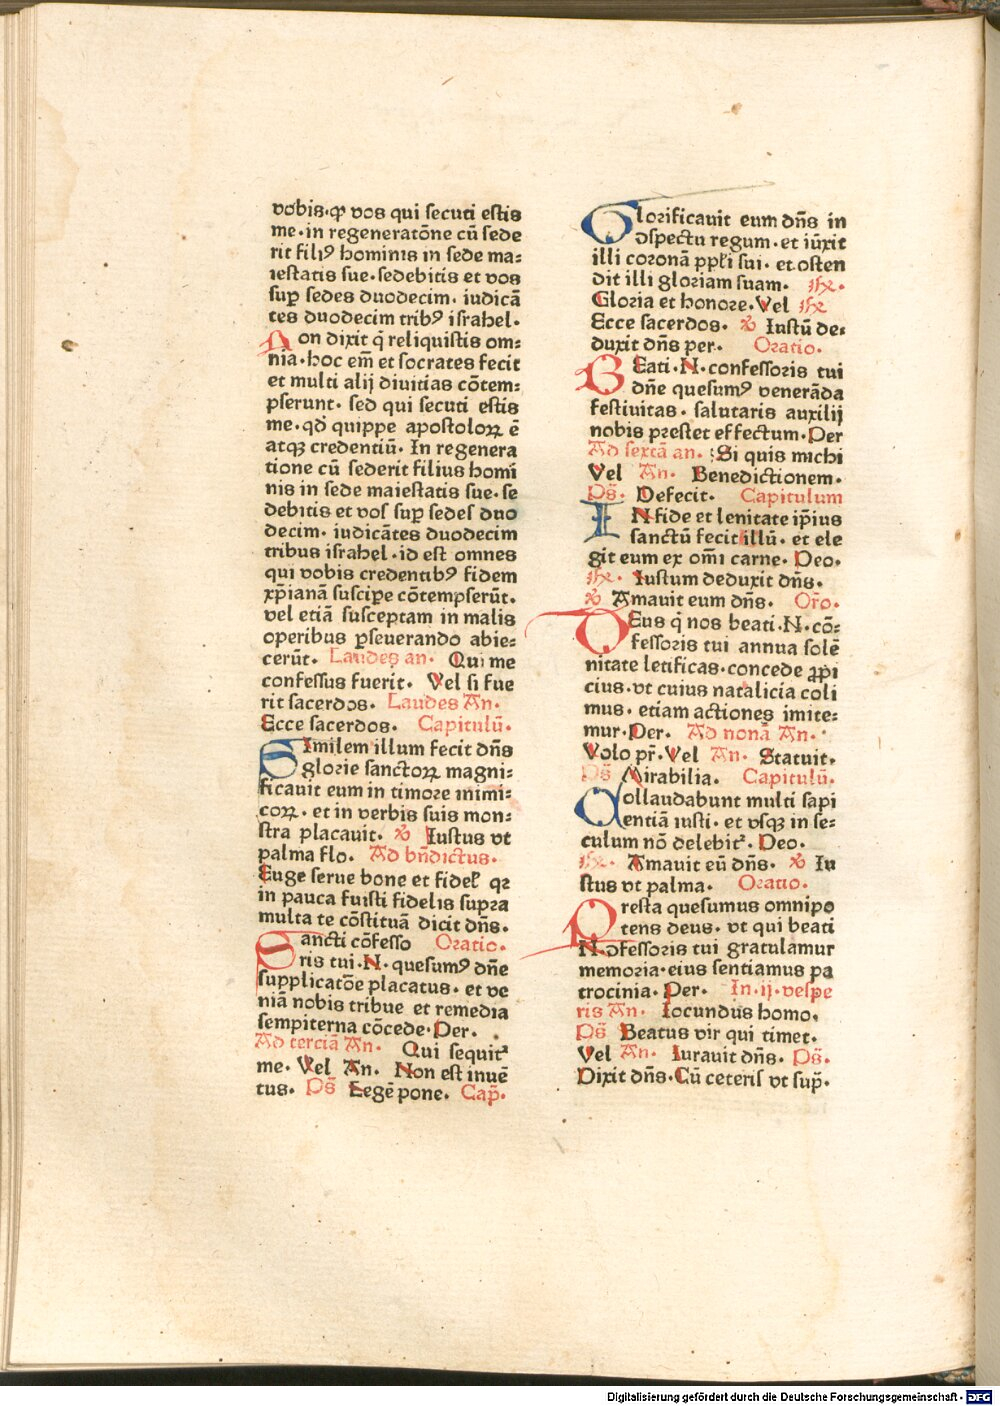 vobis·qꝫ vos qui secuti estis
me·in regeneratōne cū sede
rit filiꝰ hominis in sede ma⸗
iestatis sue·sedebitis et vos
suꝑ sedes duodecim· iudicā
tes duodecim tribꝰ israhel·
Non dixit q̄ reliquistis om⸗
nia·hoc em̄ et socrates fecit
et multi alij diuitias cōtem⸗
pserunt· sed qui secuti estis
me·qd̄ quippe apostoloꝝ ē
atqꝫ credentiū· In regenera
tione cū sederit filius homi
nis in sede maiestatis sue·se
debitis et vos suꝑ sedes duo
decim· iudicātes duodecim
tribus israhel·id est omnes
qui vobis credentibꝰ fidem
xp̄ianā susciꝑe cōtempserūt·
vel etiā susceptam in malis
operibus ꝑseuerando abie⸗
cerūt· Laudes an· Qui me
confessus fuerit· Vel si fue
rit sacerdos· Laudes An·
Ecce sacerdos· Capitulū·
Similem illum fecit dn̄s
glorie sanctoꝝ magni⸗
ficauit eum in timore inimi⸗
coꝝ·et in verbis suis mon⸗
stra placauit· ℟ Iustus vt
palma flo· Ad bn̄dictus·
Euge serue bone et fidel̄ qꝛ
in pauca fuisti fidelis supra
multa te cōstituā dicit dn̄s·
Sancti cōfesso Oratio·
ris tui·N·quesumꝰ dn̄e
supplicatōe placatus·et ve
niā nobis tribue et remedia
sempiterna cōcede·Per·
Ad terciā An· Qui sequit᷑
me·Vel An· Non est inuē
tus· Ps̄ Legē pone· Cap̄·
Glorificauit eum dn̄s in
ꝯspectu regum·et iūxit
illi coronā pp̄li sui·et·osten
dit illi gloriam suam·
Gloria et honore·Vel
Ecce sacerdos· Iustū de⸗
duxit dn̄s per· Oratio·
Beati·N·confessoris tui
dn̄e quesumꝰ venerāda
festiuitas·salutaris auxilij
nobis prestet effectum·Per
Ad sextā an· Si quis michi
Vel An· Benedictionem·
Ps̄· Defecit· Capitulum
IN fide et lenitate ip̄ius
sanctū fecit illū·et ele
git eum ex om̄i carne·Deo·
Iustum deduxit dn̄s·
Amauit eum dn̄s· Or̄o·
Deus q̄ nos beati·N·cō⸗
fessoris tui annua solē
nitate letificas·concede ꝓpi
cius·vt cuius natalicia coli
mus·etiam actiones imite⸗
mur·Per· Ad nonā An·
Volo pr̄·Vel An· Statuit·
Ps̄ Mirabilia· Capitulū·
Collaudabunt multi sapi
entiā iusti·et vsqꝫ in se⸗
culum nō delebit᷑·Deo·
Amauit eū dn̄s· Iu
stus vt palma· Oratio·
Presta quesumus omnipo
tens deus·vt qui beati
N·ꝯfessoris tui gratulamur
memoria·eius sentiamus pa
trocinia·Per· In·ij·vespe
ris An· Iocundus homo·
Ps̄ Beatus vir qui timet·
Vel An· Iurauit dn̄s· Ps̄·
Dixit dn̄s·Cū ceteris vt suꝑ·
Digitalisierung gefördert durch die Deutsche Forschungsgemeinschaft · DFG